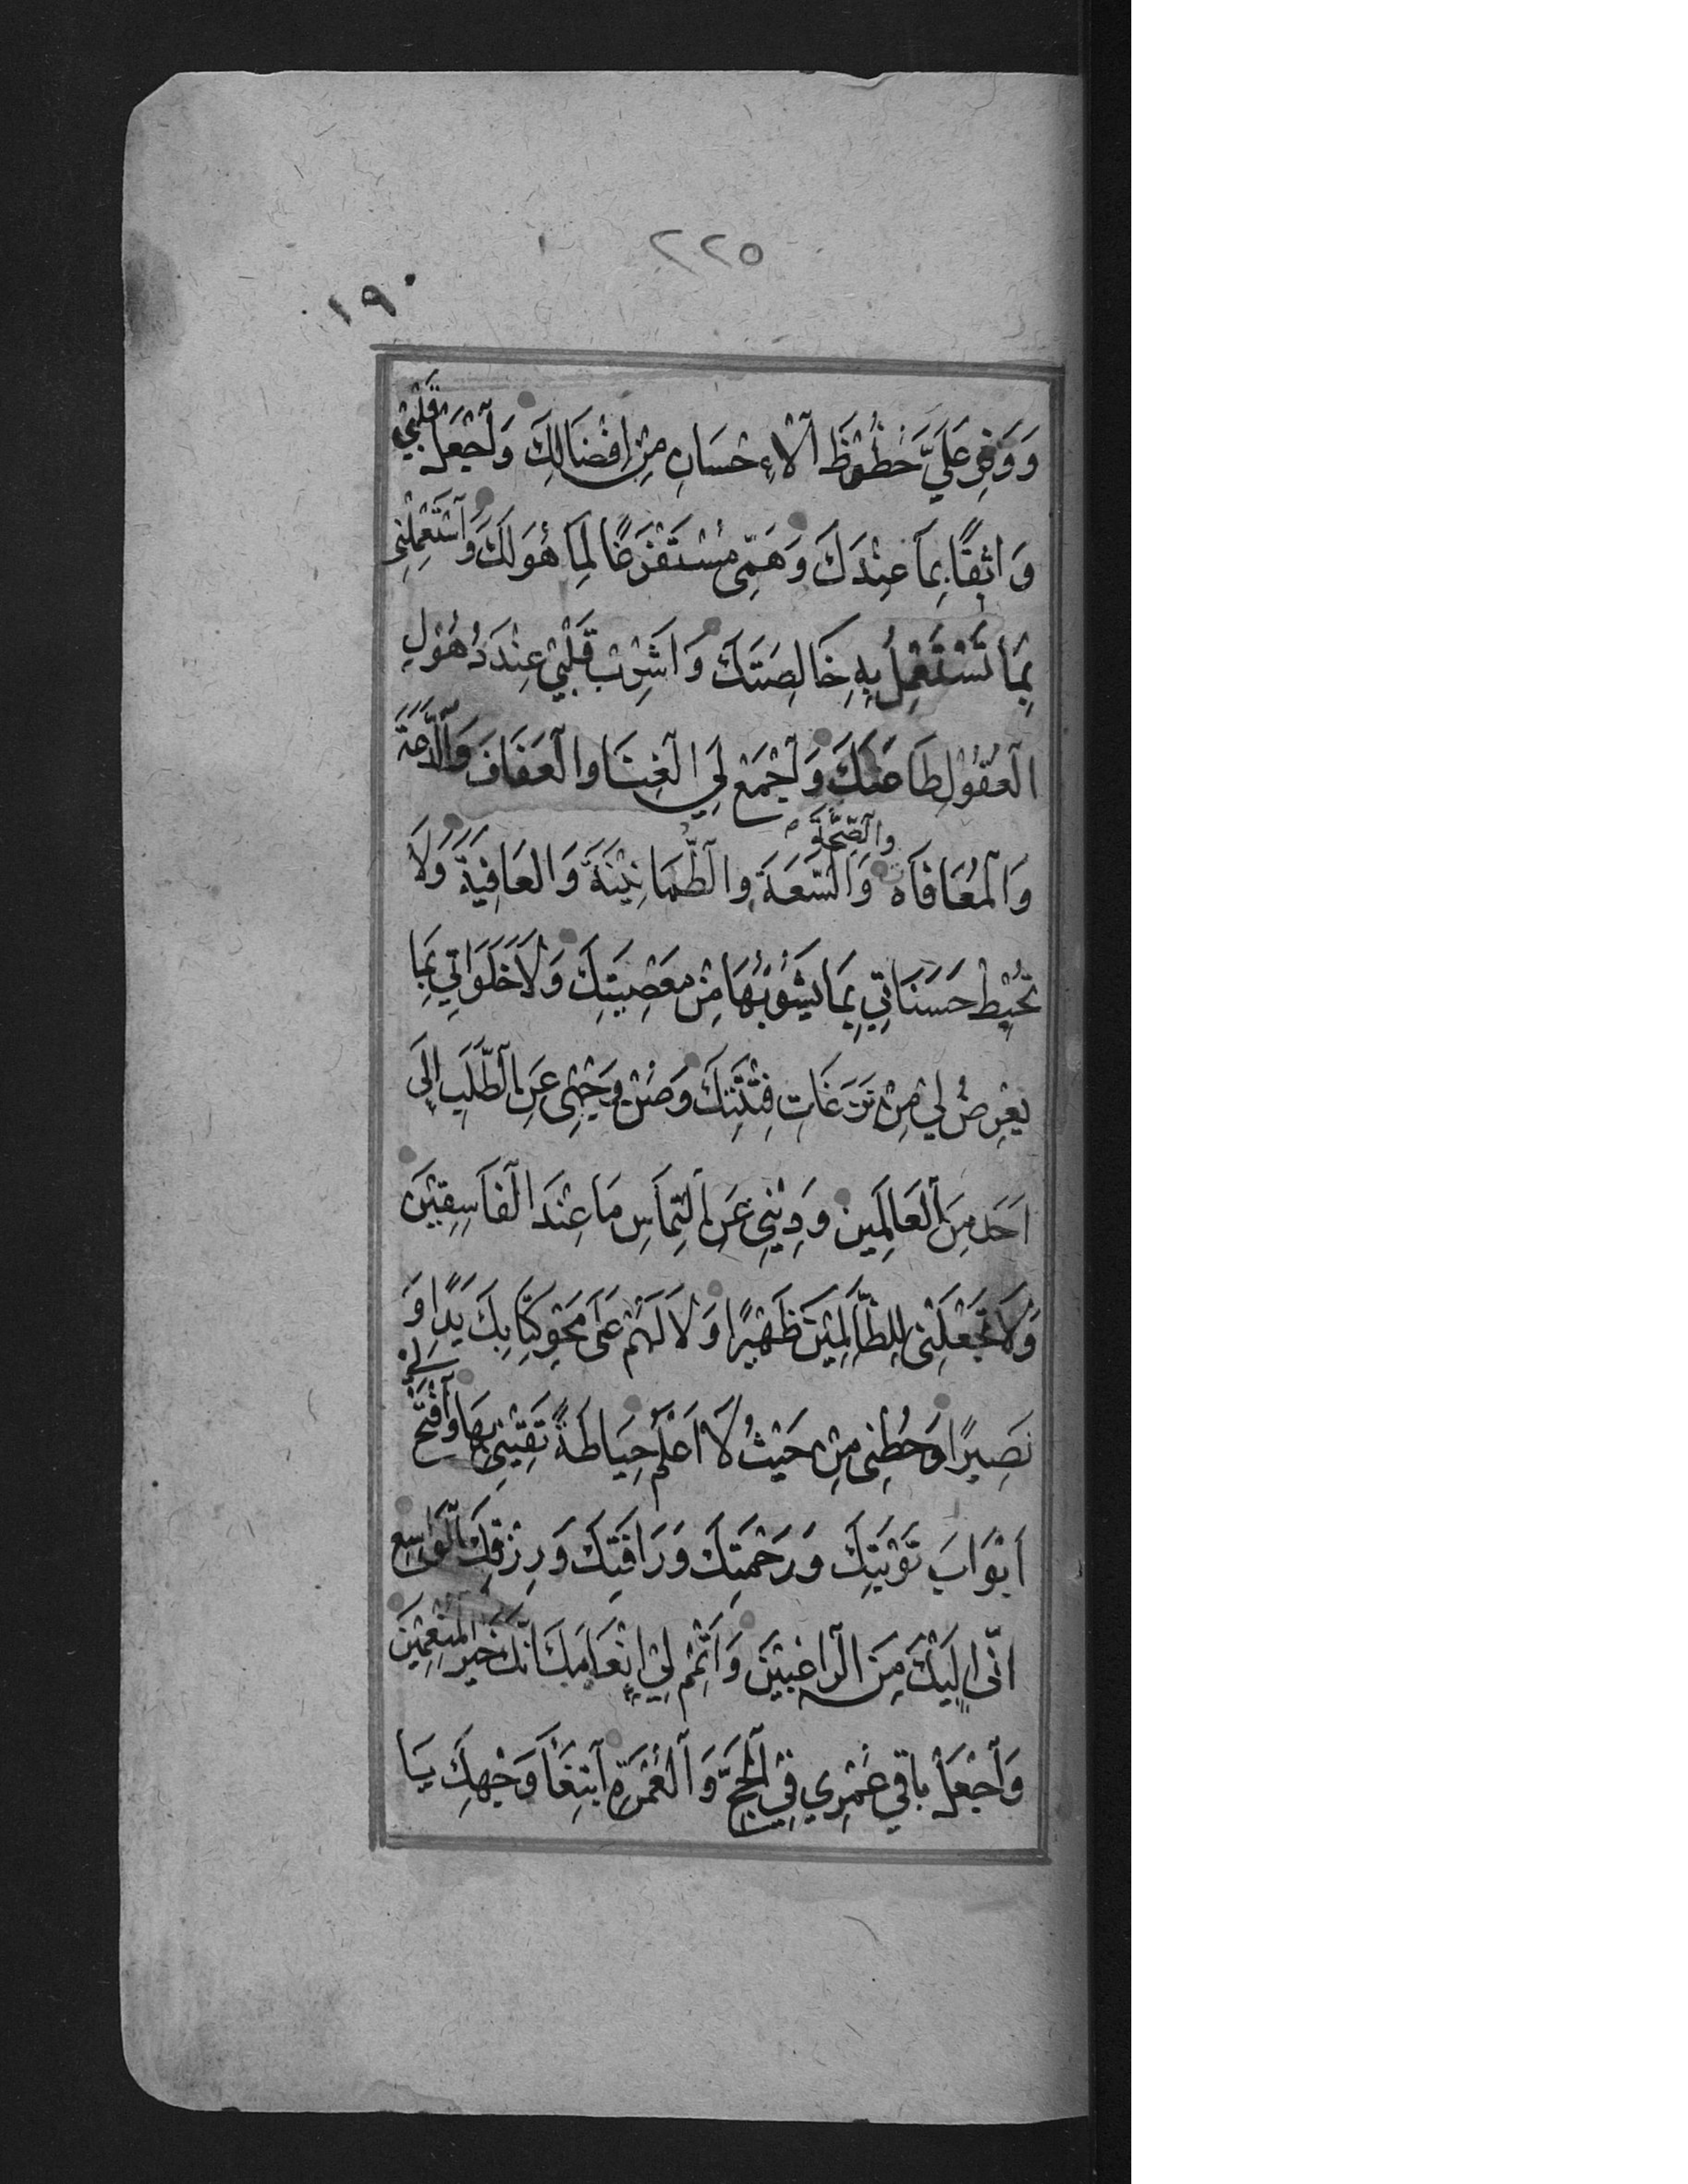 ٢٢٥
١٩٠
وَوَفِّرْ عَلَيَّ حُظُوظَ ٱلْاءِحْسَانِ مِنْ اِفْضَالِكَ وَٱجْعَلْ قَلْبِيْ
وَاثِقًا بِمَا عِنْدَكَ وَهَمِّى مُسْتَفْرَغًا لِمَا هُوَ لَكَ وَٱسْتَعْمِلْنِى
بِمَا تَسْتَعْمِلُ بِهِ خَالِصَتَكَ وَاَشْرِبْ قَلْبِيْ عِنْدَ ذُهُوْلِ
ٱلْعُقُوْلِ طَاعَتَكَ وَٱجْمَعْ لِيَ ٱلْغِنَا وَٱلْعَفَافَ وَٱلدَّعَةَ
وَٱلْمُعَافَاةَ وَٱلصِّحَّةَ وَٱلسَّعَةَ وَٱلطُّمَانِيْنَةَ وَالْعَافِيَةَ وَلَا
تُحْبِطْ حَسَنَاتِي بِمَا يَشُوْبُهَا مِنْ مَعْصِيَتِكَ وَلَا خَلَوَاتِي بِمَا
يَعْرِضُ لِي مِنْ نَزَغَاتِ فِتْنَتِكَ وَصُنْ وَجْهِى عَنِ ٱلطَّلَبِ اِلَى
اَحَدٍ مِنَ ٱلْعَالَمِينَ وَدِيْنِي عَنِ ٱلْتِمَاسِ مَا عِنْدَ ٱلْفَاسِقِيْنَ
وَلَا تَجْعَلْنِى لِلظَّالِمِيْنَ ظَهِيْرًا وَلَا لَهُمْ عَلَى مَحْوِ كِتَابِكَ يَدًا وَ
نَصِيرًا وَحُطْنِى مِنْ حَيْثُ لَا اَعْلَمُ حِيَاطَةً تَقِيْنِى بِهَا وَٱفْتَحْ لِي
اَبْوَابَ تَوْبَتِكَ وَرَحْمَتِكَ وَرَافَتِكَ وَرِزْقِكَ ٱلْوَاسِعِ
اِنِّى اِلَيْكَ مِنَ ٱلرَّاغِبِيْنَ وَاَتْمِمْ لِيْ اِنْعَامَكَ اِنَّكَ خَيْرُ ٱلْمُنْعِمِيْنَ
وَٱجْعَلْ بَاقِيَ عُمْرِي فِي ٱلْحَجِّ وَٱلْعُمْرَةِ ٱبْتِغَاَ وَجْهِكَ يَا